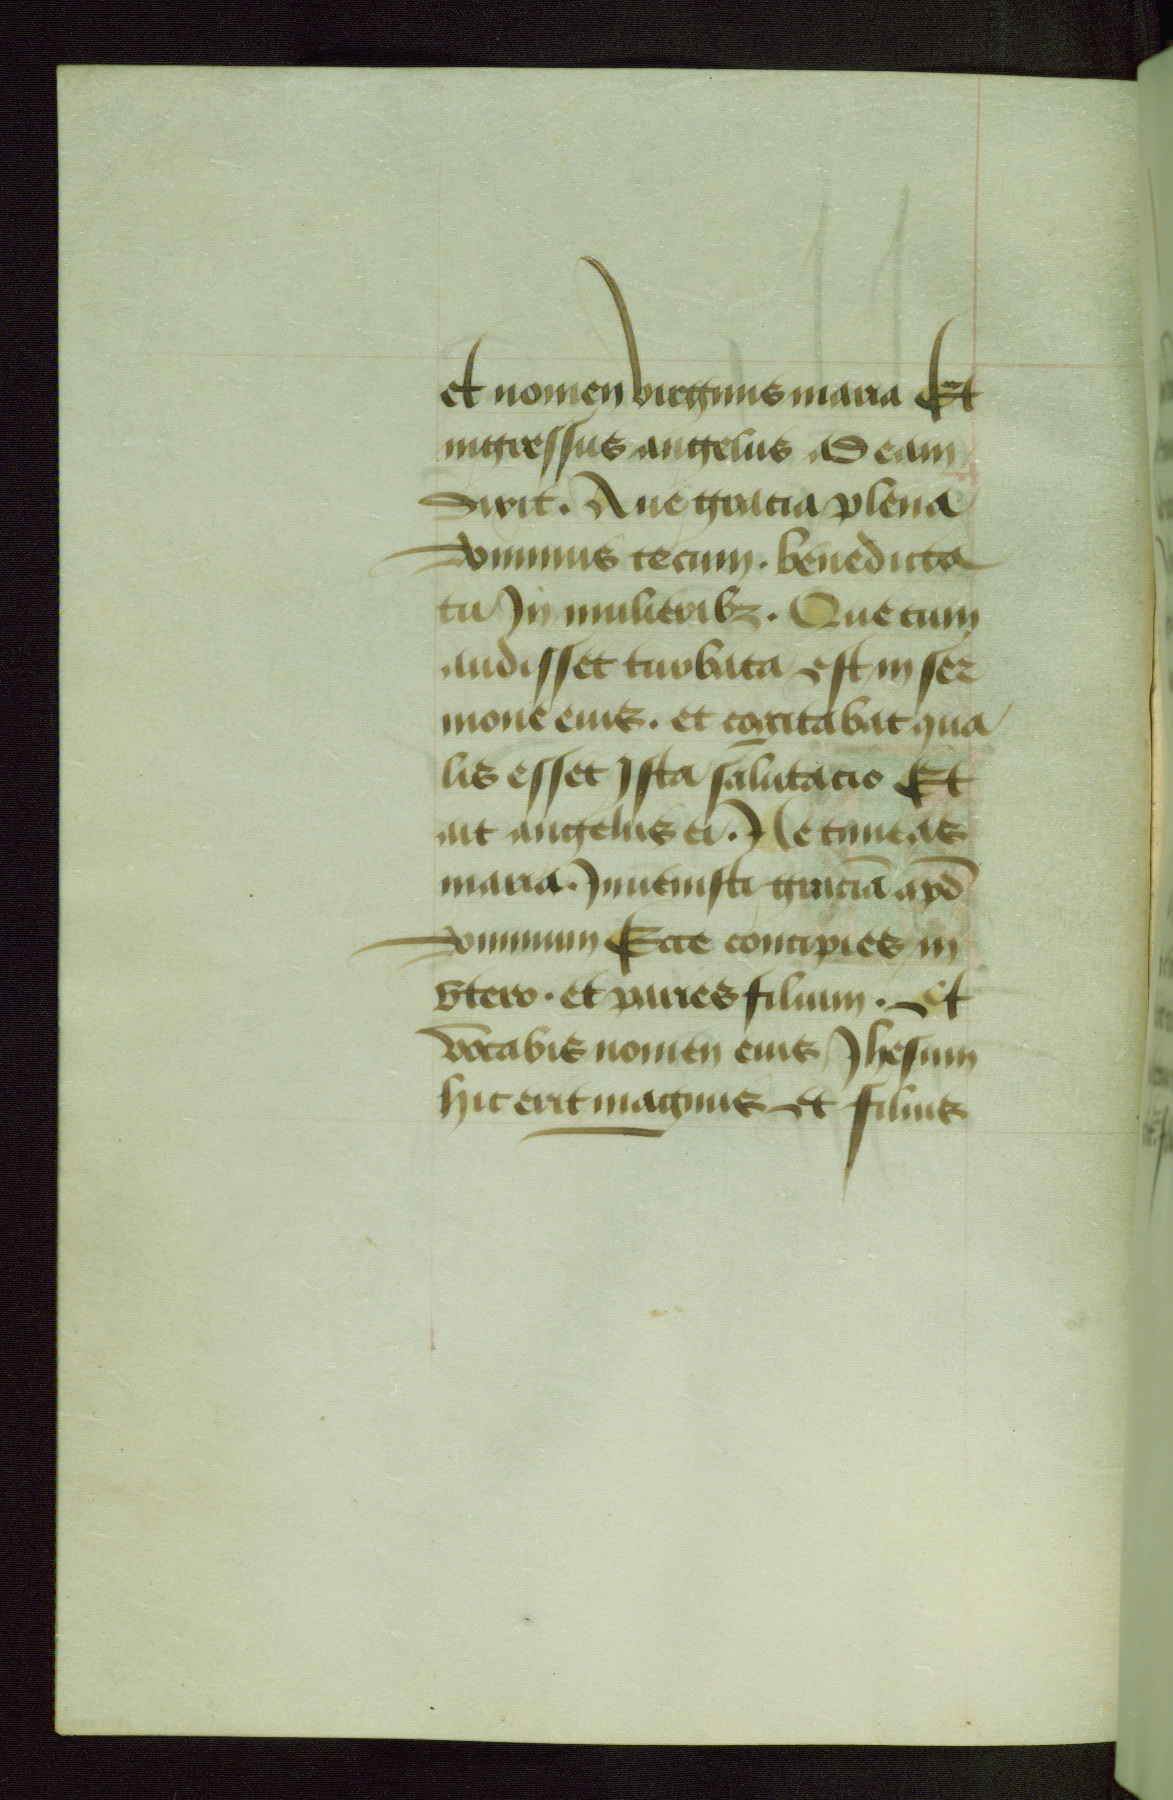 et nomen virginis maria Et
ingressus angelus ad eam
dixit. Aue gracia plena
dominus tecum. benedicta
tu Jn mulieribꝫ. Que cum
audisset turbata est in ser
mone eius. et cogitabat qua
lis esset Jsta salutacio Et
ait angelus ei. Ne timeas
maria. Jnuenisti graciā apd̄
dominum Ecce concipies in
vtero. et paries filium. et
vocabis nomen eius Jhesum
hic erit magnus et filius